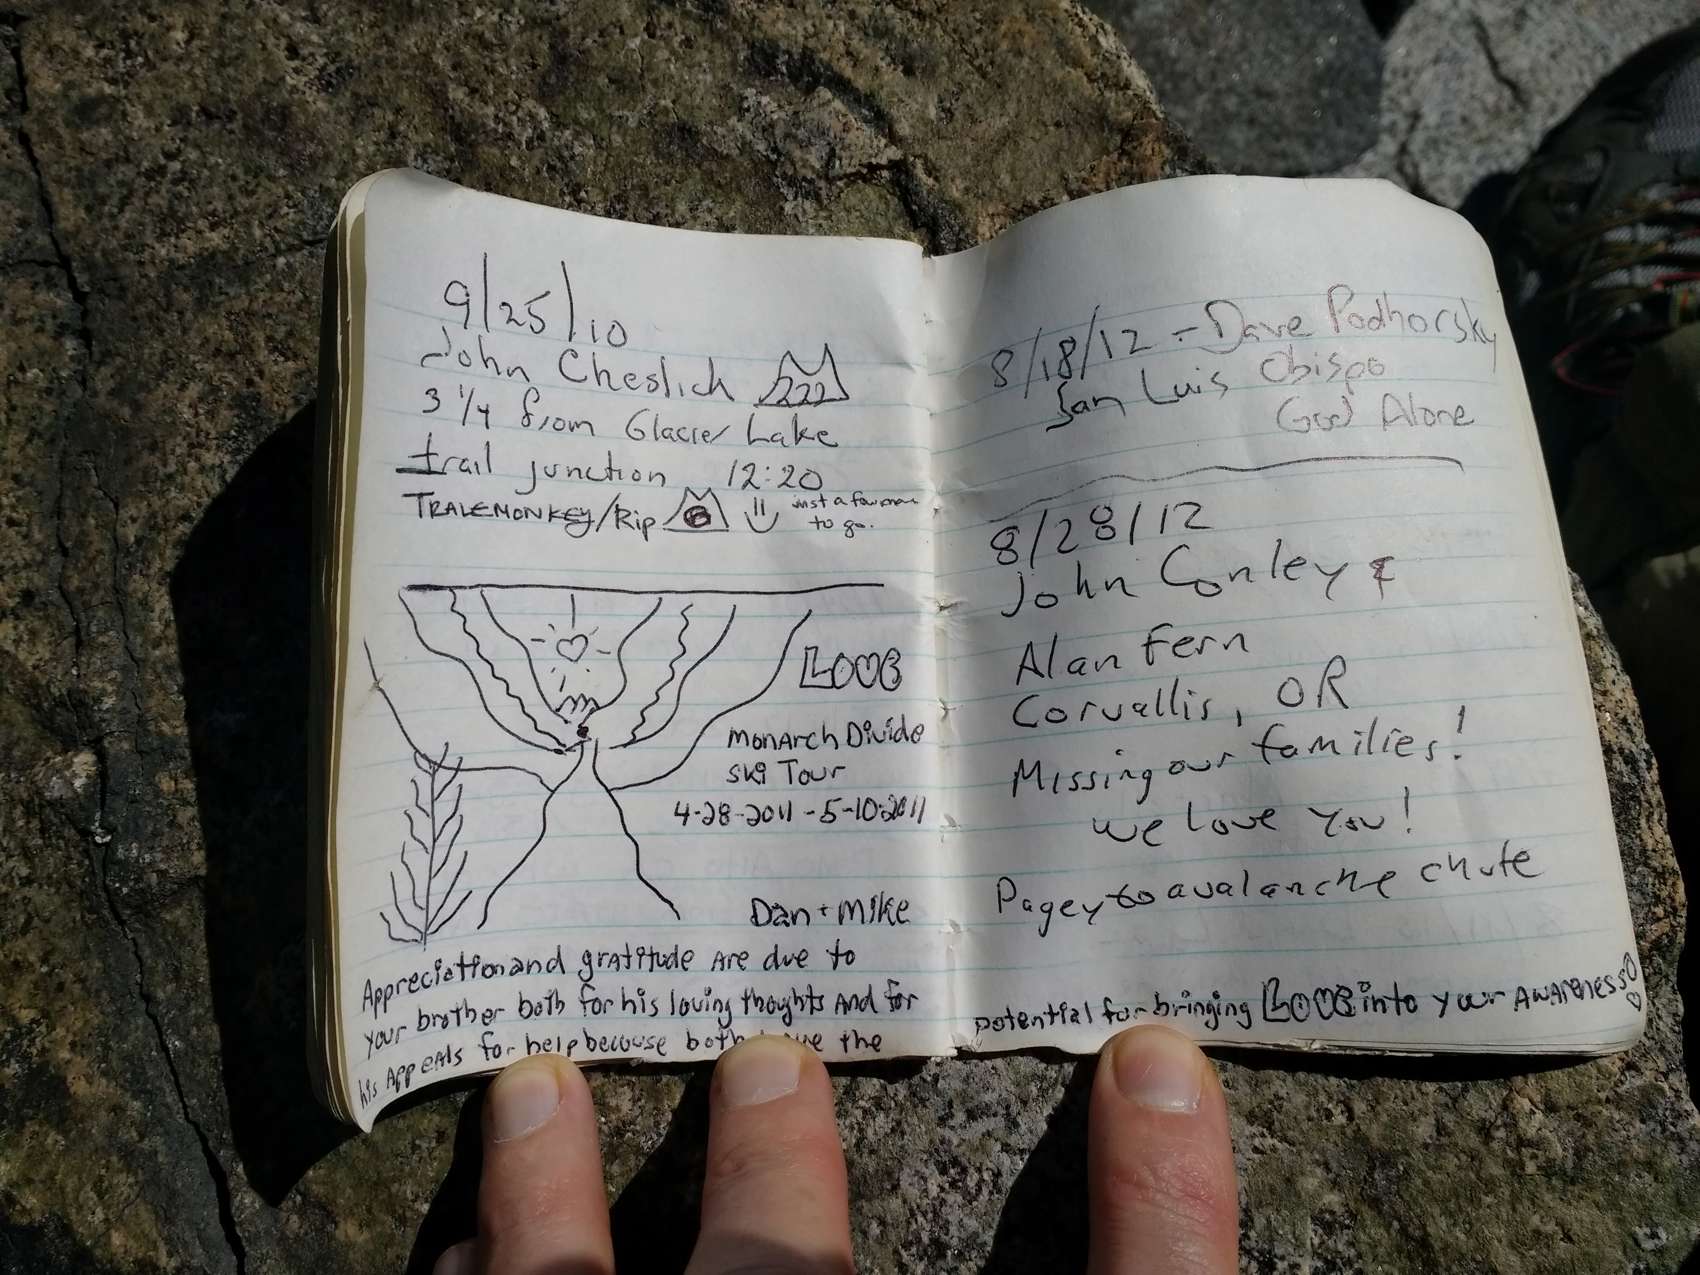 9/25/10
John Cheslich 222
3 1/4 from Glacier Lake
trail junction 12:20
TRALEMONKEY/Rip 6 just a few more
to go.
LOVE
MonArch Divide
Ski Tour
4-28-2011 - 5-10-2011
Dan + Mike
Appreciation and gratitude Are due to
your brother both for his loving thoughts And for
his AppeAls for help because both the
8/18/12 - Dave Podhorsky
San Luis Obispo
God Alone
8/28/12
John Conley &
Alan Fern
Corvallis, OR
Missing our families!
we love you!
Pagey to avalanche chute
potential for bringing LOVE into your AWAReness